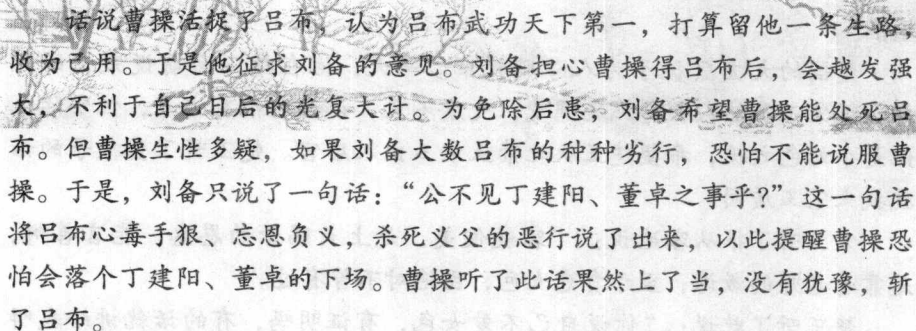 话说曹操活捉了吕布，认为吕布武功天下第一，打算留他一条生路，
收为己用。于是他征求刘备的意见。刘备担心曹操得吕布后，会越发强
大，不利于自己日后的光复大计。为免除后患，刘备希望曹操能处死吕
布。但曹操生性多疑，如果刘备大数吕布的种种劣行，恐怕不能说服曹
操。于是，刘备只说了一句话：“公不见丁建阳、董卓之事乎？”这一句话
将吕布心毒手狠、忘恩负义，杀死义父的恶行说了出来，以此提醒曹操恐
怕会落个丁建阳、董卓的下场。曹操听了此话果然上了当，没有犹豫，斩
了吕布。